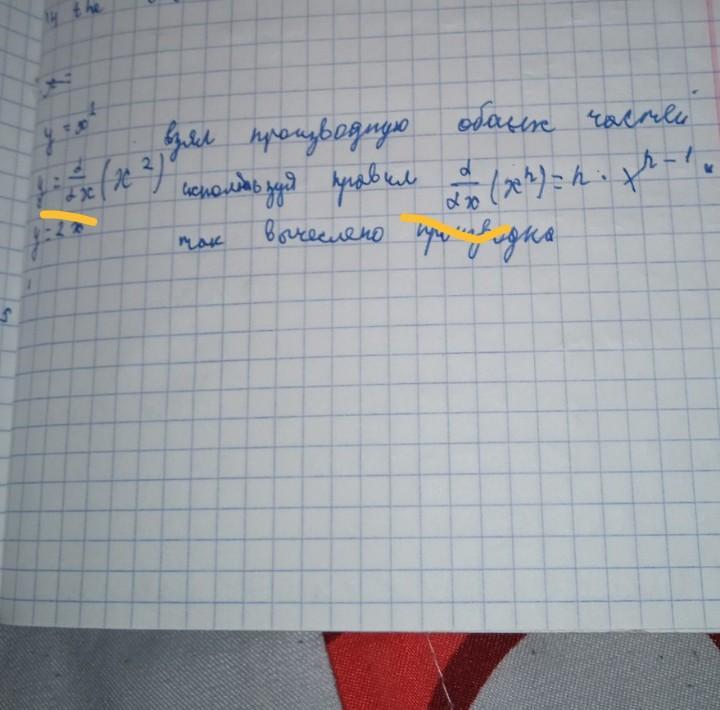 14 the
x=
y = x² взял производную обоих частей
y = d/dx (x²) используя правил d/dx (xⁿ) = n · xⁿ⁻¹.
y = 2x так вычеслено производна
5